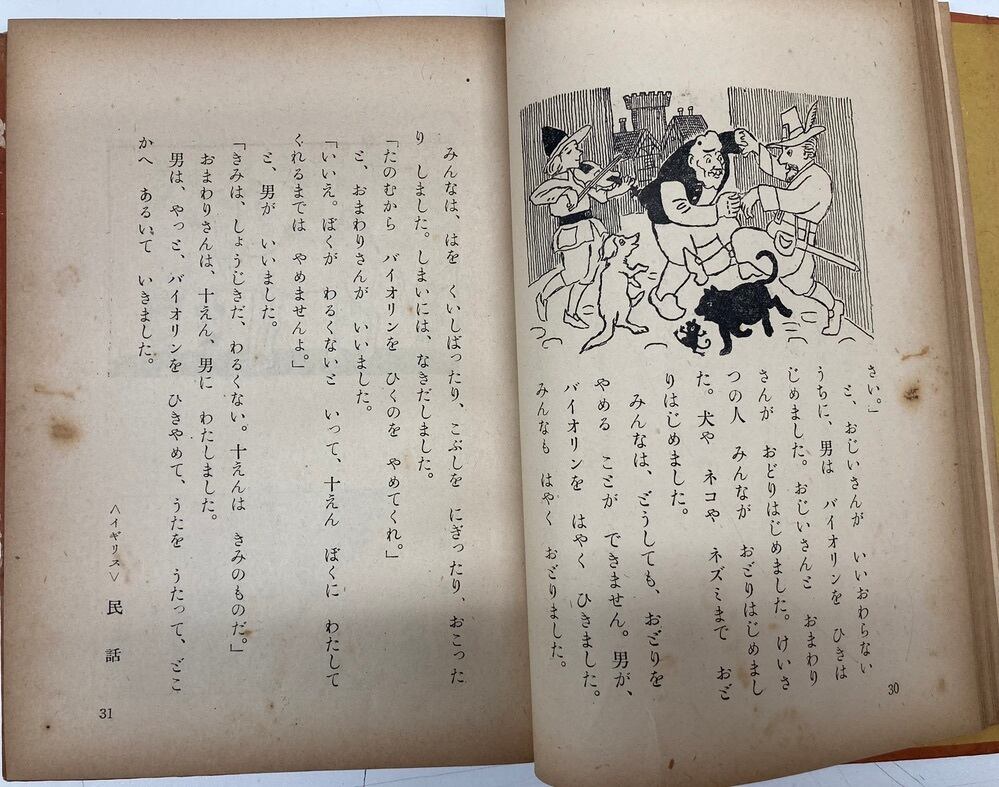 さい。」
と、おじいさんが いいおわらない
うちに、男は バイオリンを ひきは
じめました。おじいさんと おまわり
さんが おどりはじめました。けいさ
つの人 みんなが おどりはじめまし
た。犬や ネコや ネズミまで おど
りはじめました。
みんなは、どうしても、おどりを
やめる ことが できません。男が、
バイオリンを はやく ひきました。
みんなも はやく おどりました。
30
みんなは、はを くいしばったり、こぶしを にぎったり、おこった
り しました。しまいには、なきだしました。
「たのむから バイオリンを ひくのを やめてくれ。」
と、おまわりさんが いいました。
「いいえ。ぼくが わるくないと いって、十えん ぼくに わたして
くれるまでは やめませんよ。」
と、男が いいました。
「きみは、しょうじきだ、わるくない。十えんは きみのものだ。」
おまわりさんは、十えん、男に わたしました。
男は、やっと、バイオリンを ひきやめて、うたを うたって、どこ
かへ あるいて いきました。
〈イギリス〉 民話
31